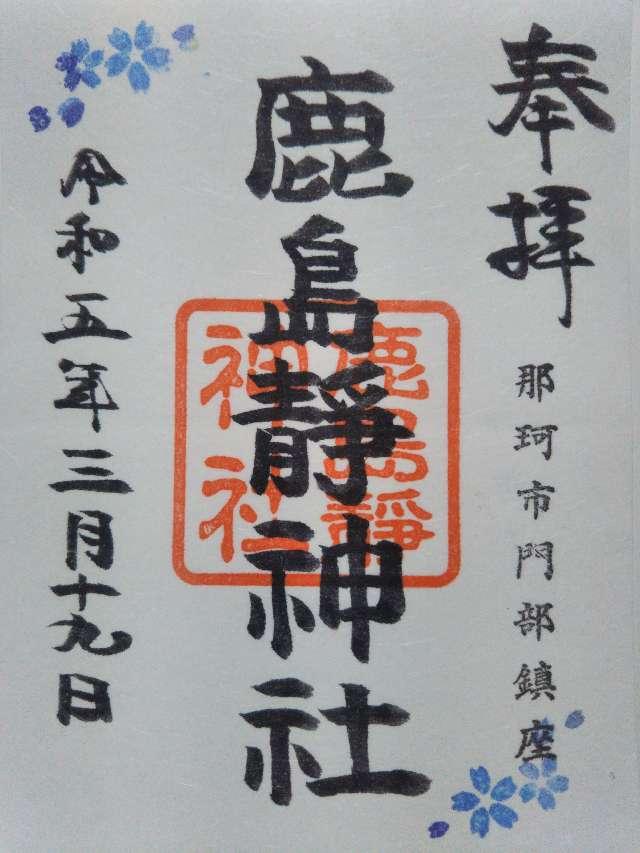 奉拝
那珂市門部鎮座
鹿島靜神社
鹿島靜
神社
令和五年三月十九日